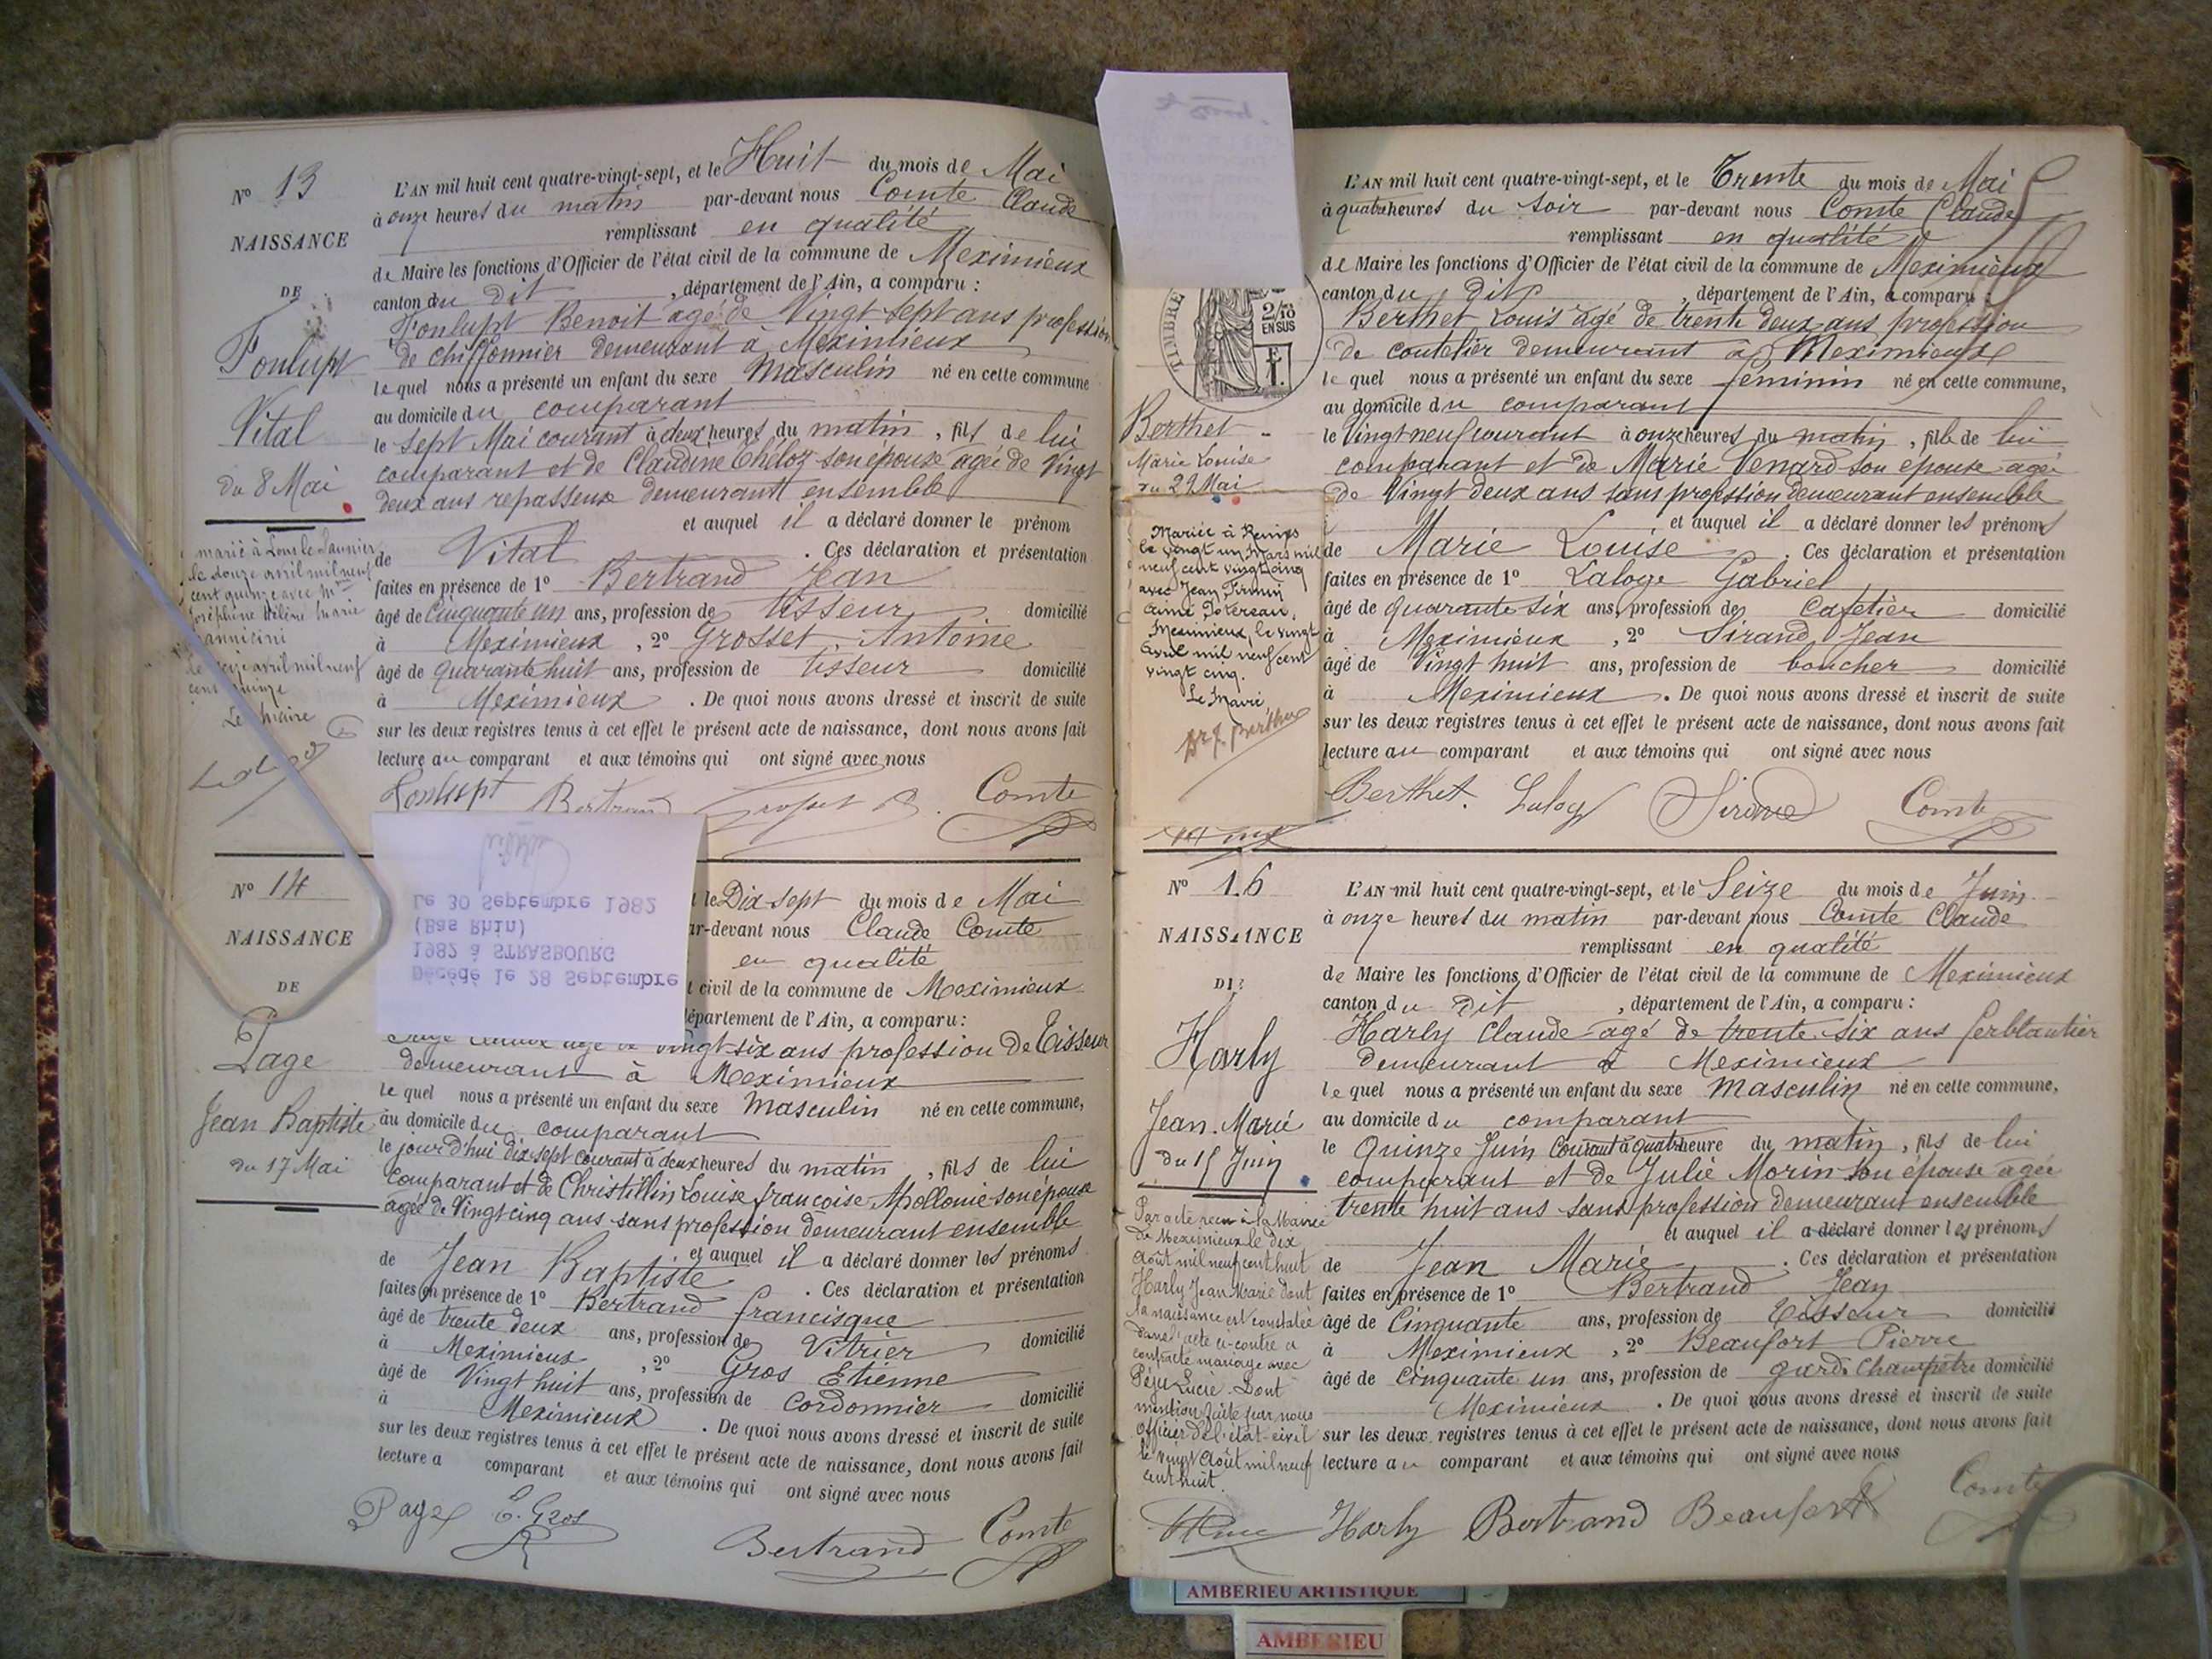 Nº 13
NAISSANCE
DE
Fonlupt
Vital
du 8 Mai
marié à Lons le Saunier
le douze avril mil neuf
cent quinze avec Mlle
Joséphine Hélène Marie
le seize avril mil neuf
cent quinze
Le Maire
L'AN mil huit cent quatre-vingt-sept, et le Huit du mois de Mai
à onze heures du matin par-devant nous Comte Claude
remplissant en qualité
de Maire les fonctions d'Officier de l'état civil de la commune de Meximieux
canton du dit, département de l'Ain, a comparu :
Fonlupt Benoit agé de Vingt sept ans profession
de chiffonnier demeurant à Meximieux
lequel nous a présenté un enfant du sexe Masculin né en cette commune
au domicile du comparant
le sept Mai courant à deux heures du matin, fils de lui
comparant et de Claudine Chéloz son épouse agée de Vingt
deux ans repasseuse demeurant ensemble
et auquel il a déclaré donner le prénom
de Vital. Ces déclaration et présentation
faites en présence de 1º Bertrand Jean
âgé de Cinquante un ans, profession de tisseur domicilié
à Meximieux, 2º Grosset Antoine
âgé de quarante huit ans, profession de tisseur domicilié
à Meximieux. De quoi nous avons dressé et inscrit de suite
sur les deux registres tenus à cet effet le présent acte de naissance, dont nous avons fait
lecture au comparant et aux témoins qui ont signé avec nous
Fonlupt Bertrand Grosset Comte
Nº 14
NAISSANCE
DE
Page
Jean Baptiste
du 17 Mai
Décédé le 28 Septembre
1982 à STRASBOURG
(Bas Rhin)
Le 30 Septembre 1982
le Dix-sept du mois de Mai
par-devant nous Claude Comte
en qualité
civil de la commune de Meximieux
département de l'Ain, a comparu :
vingt-six ans profession de Tisseur
demeurant à Meximieux
lequel nous a présenté un enfant du sexe Masculin né en cette commune,
au domicile du comparant
le jour d'hui dix-sept courant à deux heures du matin, fils de lui
comparant et de Christillin Louise françoise Apollonie son épouse
agée de Vingt cinq ans sans profession demeurant ensemble
et auquel il a déclaré donner les prénoms
de Jean Baptiste. Ces déclaration et présentation
faites en présence de 1º Bertrand francisque
âgé de trente deux ans, profession de Vitrier domicilié
à Meximieux, 2º Gros Etienne
âgé de Vingt huit ans, profession de Cordonnier domicilié
à Meximieux. De quoi nous avons dressé et inscrit de suite
sur les deux registres tenus à cet effet le présent acte de naissance, dont nous avons fait
lecture a comparant et aux témoins qui ont signé avec nous
Page E. Gros Bertrand Comte
TIMBRE
2/10
EN SUS
Berthet
Marie Louise
du 29 Mai
Mariée à Reims
le vingt un Mars mil
neuf cent vingt cinq
avec Jean Firmin
Aimé
Meximieux, le vingt
Avril mil neuf cent
vingt cinq.
Le Maire
L'AN mil huit cent quatre-vingt-sept, et le Trente du mois de Mai
à quatre heures du soir par-devant nous Comte Claude
remplissant en qualité
de Maire les fonctions d'Officier de l'état civil de la commune de Meximieux
canton du dit, département de l'Ain, a comparu :
Berthet Louis agé de trente deux ans profession
de coutelier demeurant à Meximieux
lequel nous a présenté un enfant du sexe féminin né en cette commune,
au domicile du comparant
le Vingt neuf courant à onze heures du matin, fille de lui
comparant et de Marie Venard son épouse agée
de Vingt deux ans sans profession demeurant ensemble
et auquel il a déclaré donner les prénoms
de Marie Louise. Ces déclaration et présentation
faites en présence de 1º Laloge Gabriel
âgé de quarante six ans, profession de Cafetier domicilié
à Meximieux, 2º Sirand Jean
âgé de Vingt huit ans, profession de boucher domicilié
à Meximieux. De quoi nous avons dressé et inscrit de suite
sur les deux registres tenus à cet effet le présent acte de naissance, dont nous avons fait
lecture au comparant et aux témoins qui ont signé avec nous
Berthet. Laloge Sirand Comte
Nº 16
NAISSANCE
DE
Harly
Jean Marie
du 15 Juin
Par acte reçu à la Mairie
de Meximieux le dix
Août mil neuf cent huit
Harly Jean Marie dont
la naissance est constatée
dans l'acte ci-contre a
contracté mariage avec
Péju Lucie. Dont
mention faite par nous
Officier de l'état-civil
le vingt Août mil neuf
cent huit.
L'AN mil huit cent quatre-vingt-sept, et le Seize du mois de Juin
à onze heures du matin par-devant nous Comte Claude
remplissant en qualité
de Maire les fonctions d'Officier de l'état civil de la commune de Meximieux
canton du dit, département de l'Ain, a comparu :
Harly Claude agé de trente six ans ferblantier
demeurant à Meximieux
lequel nous a présenté un enfant du sexe Masculin né en cette commune,
au domicile du comparant
le Quinze Juin courant à quatre heure du matin, fils de lui
comparant et de Julie Morin son épouse agée
trente huit ans sans profession demeurant ensemble
et auquel il a déclaré donner les prénoms
de Jean Marie. Ces déclaration et présentation
faites en présence de 1º Bertrand Jean
âgé de Cinquante ans, profession de Tisseur domicilié
à Meximieux, 2º Beaufort Pierre
âgé de Cinquante un ans, profession de garde Champêtre domicilié
Meximieux. De quoi nous avons dressé et inscrit de suite
sur les deux registres tenus à cet effet le présent acte de naissance, dont nous avons fait
lecture au comparant et aux témoins qui ont signé avec nous
Harly Bertrand Beaufort Comte
AMBERIEU ARTISTIQUE
AMBERIEU